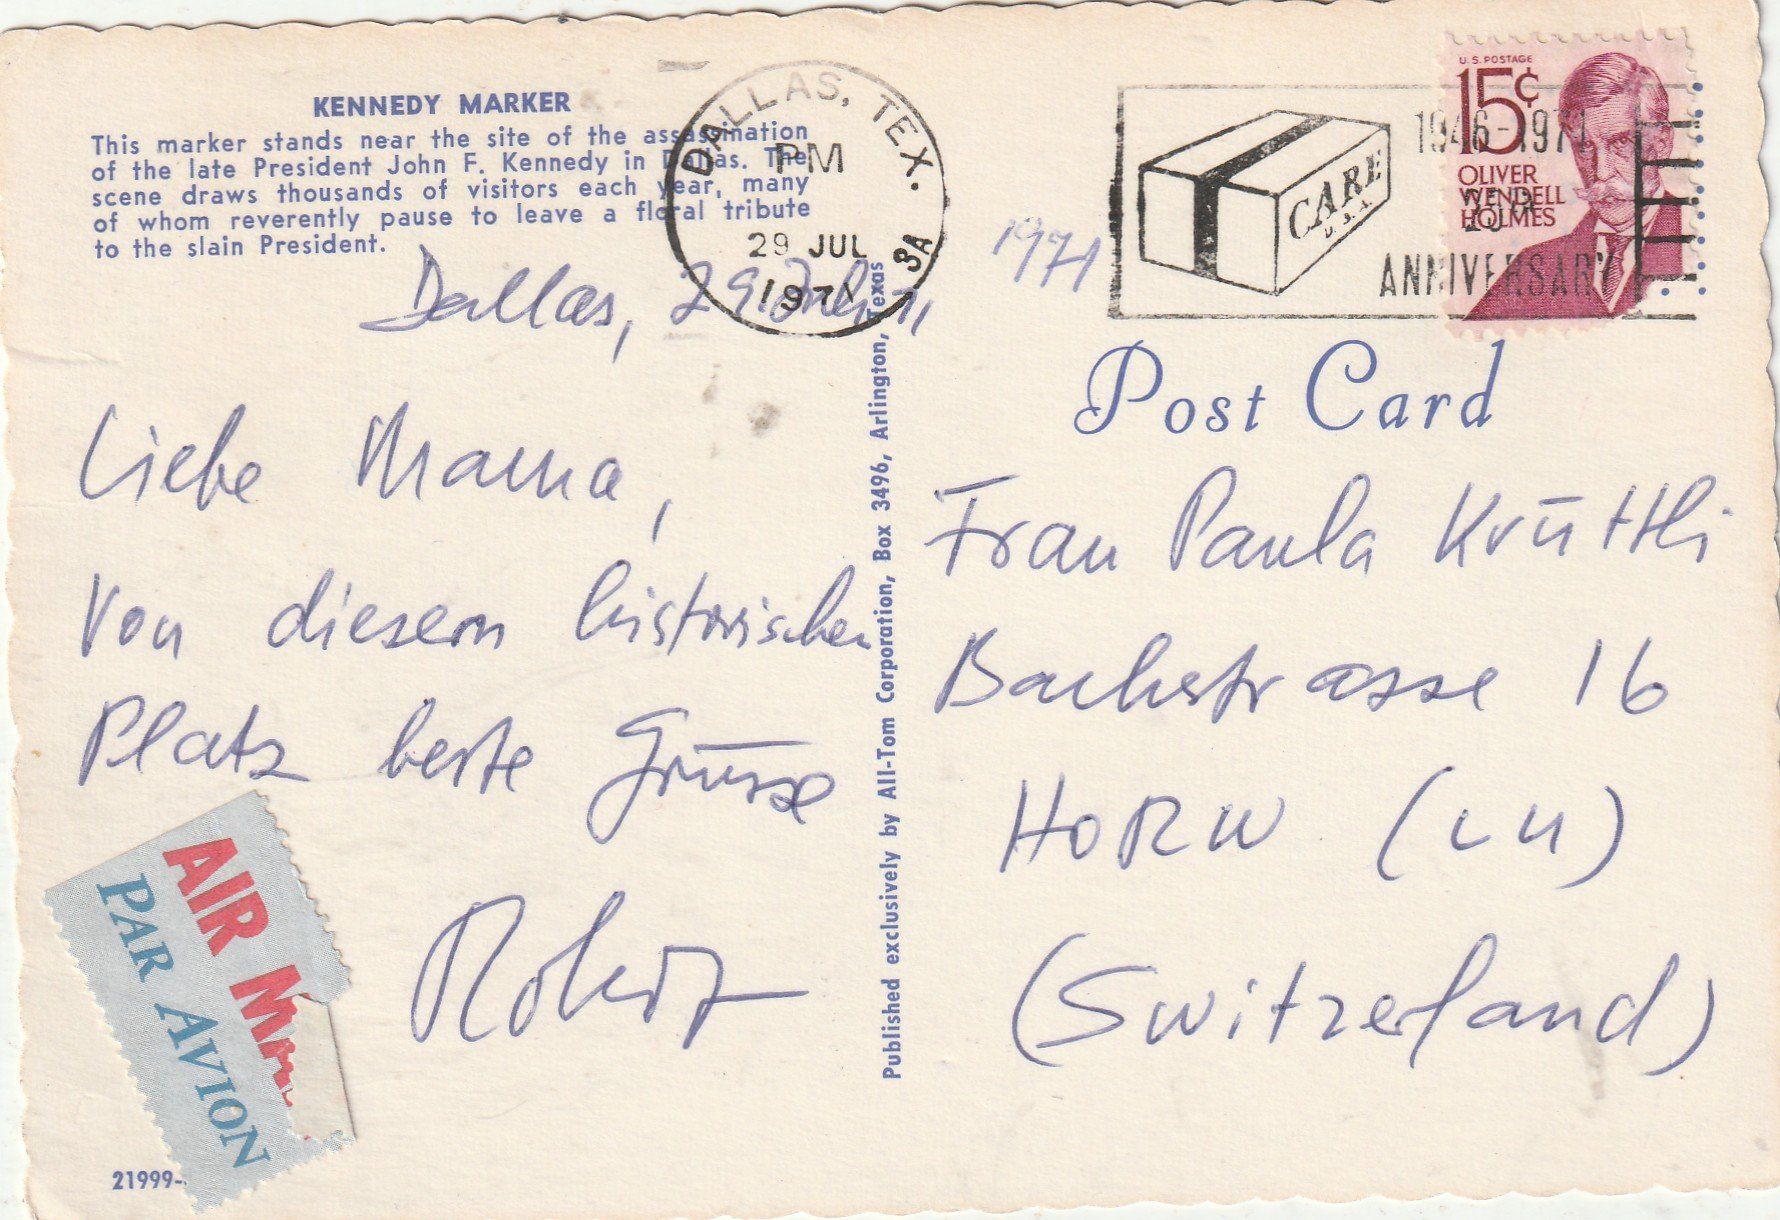 KENNEDY MARKER
This marker stands near the site of the assassination
of the late President John F. Kennedy in Dallas. The
scene draws thousands of visitors each year, many
of whom reverently pause to leave a floral tribute
to the slain President.
DALLAS, TEX.
PM
29 JUL
1971
3A
1946-1971
CARE
U.S.A.
25th
ANNIVERSARY
U.S. POSTAGE
15¢
OLIVER
WENDELL
HOLMES
1971
Dallas, 29. Juli 71
Post Card
Liebe Mama,
Von diesem historischen
Platz beste Grüsse
Robert
Frau Paula Krüttli
Bachstrasse 16
HORW (LU)
(Switzerland)
Published exclusively by All-Tom Corporation, Box 3496, Arlington, Texas
AIR M
PAR AVION
21999-